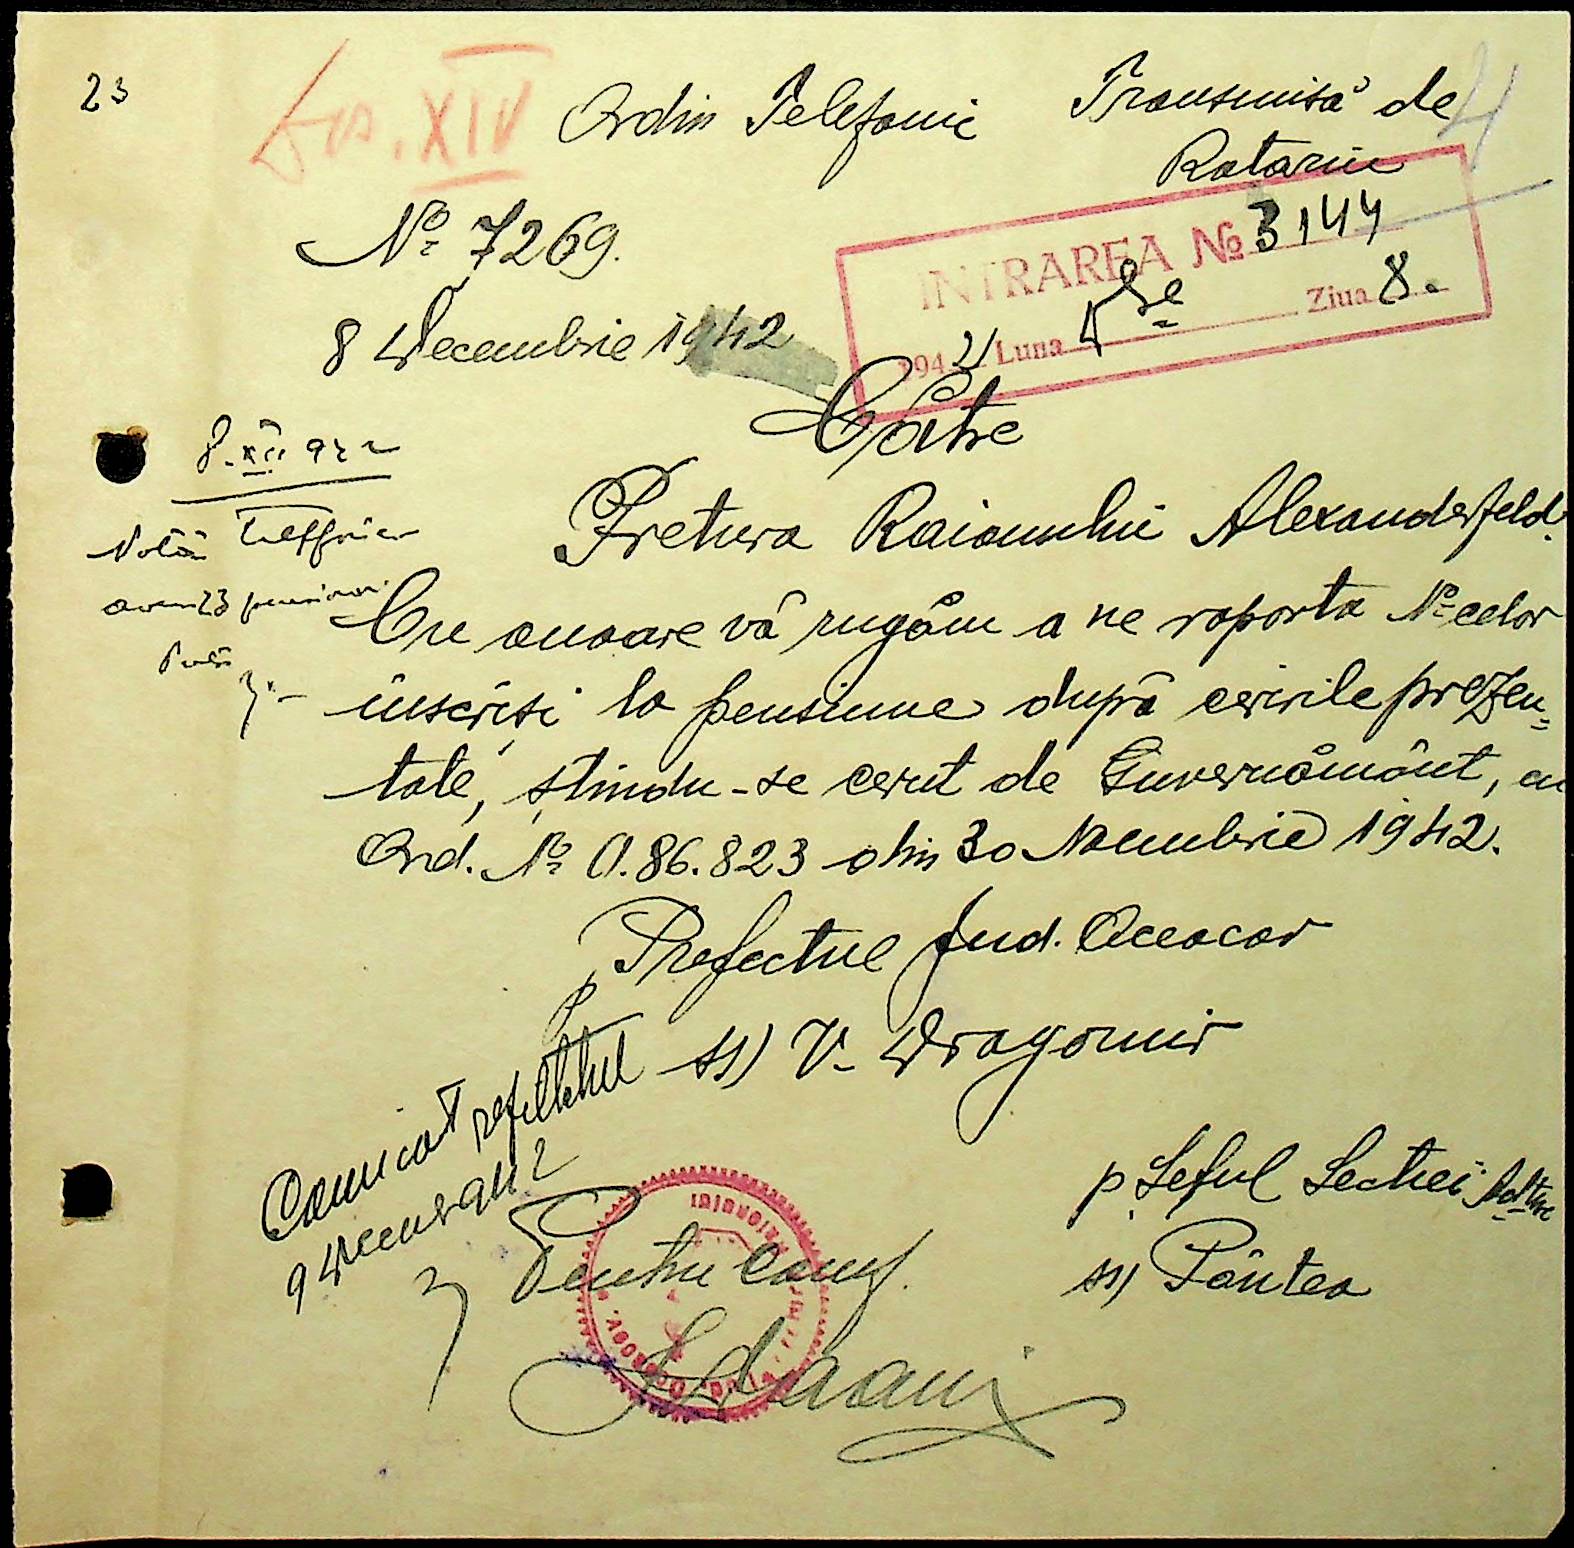 23
Dos. XIV
Ordin Telefonic
Transmisă de
Rotariu
4
No 7269.
8 Decembrie 1942
INTRAREA No 3144
1942 Luna Xbre Ziua 8.
Către
Pretura Raionului Alexanderfeld.
8.XII 942
Notă telefonică
avem 23 pensionari
Cu onoare vă rugăm a ne raporta No celor
înscriși la pensiune după cererile prezen=
tate, știndu-se cerut de Guvernământ, cu
Ord. No A.86.823 din 30 Noembrie 1942.
p. Prefectul Jud. Oceacov
ss) V. Dragomir
Comunicat rezultatul
9 Decemvr 942
p Șeful Secției Adtive
ss) Pântea
Pentru Conf.